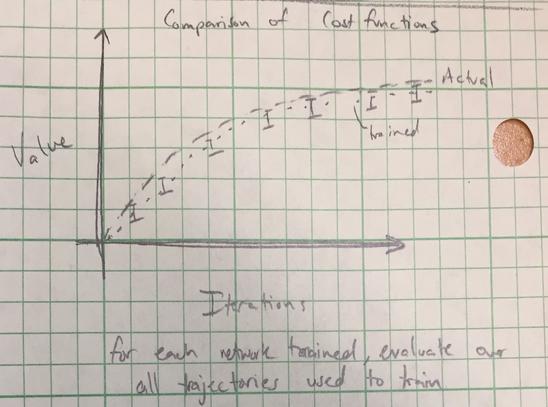 Comparison of Cost functions
Value
Actual
trained
Iterations
for each network trained, evaluate over
all trajectories used to train